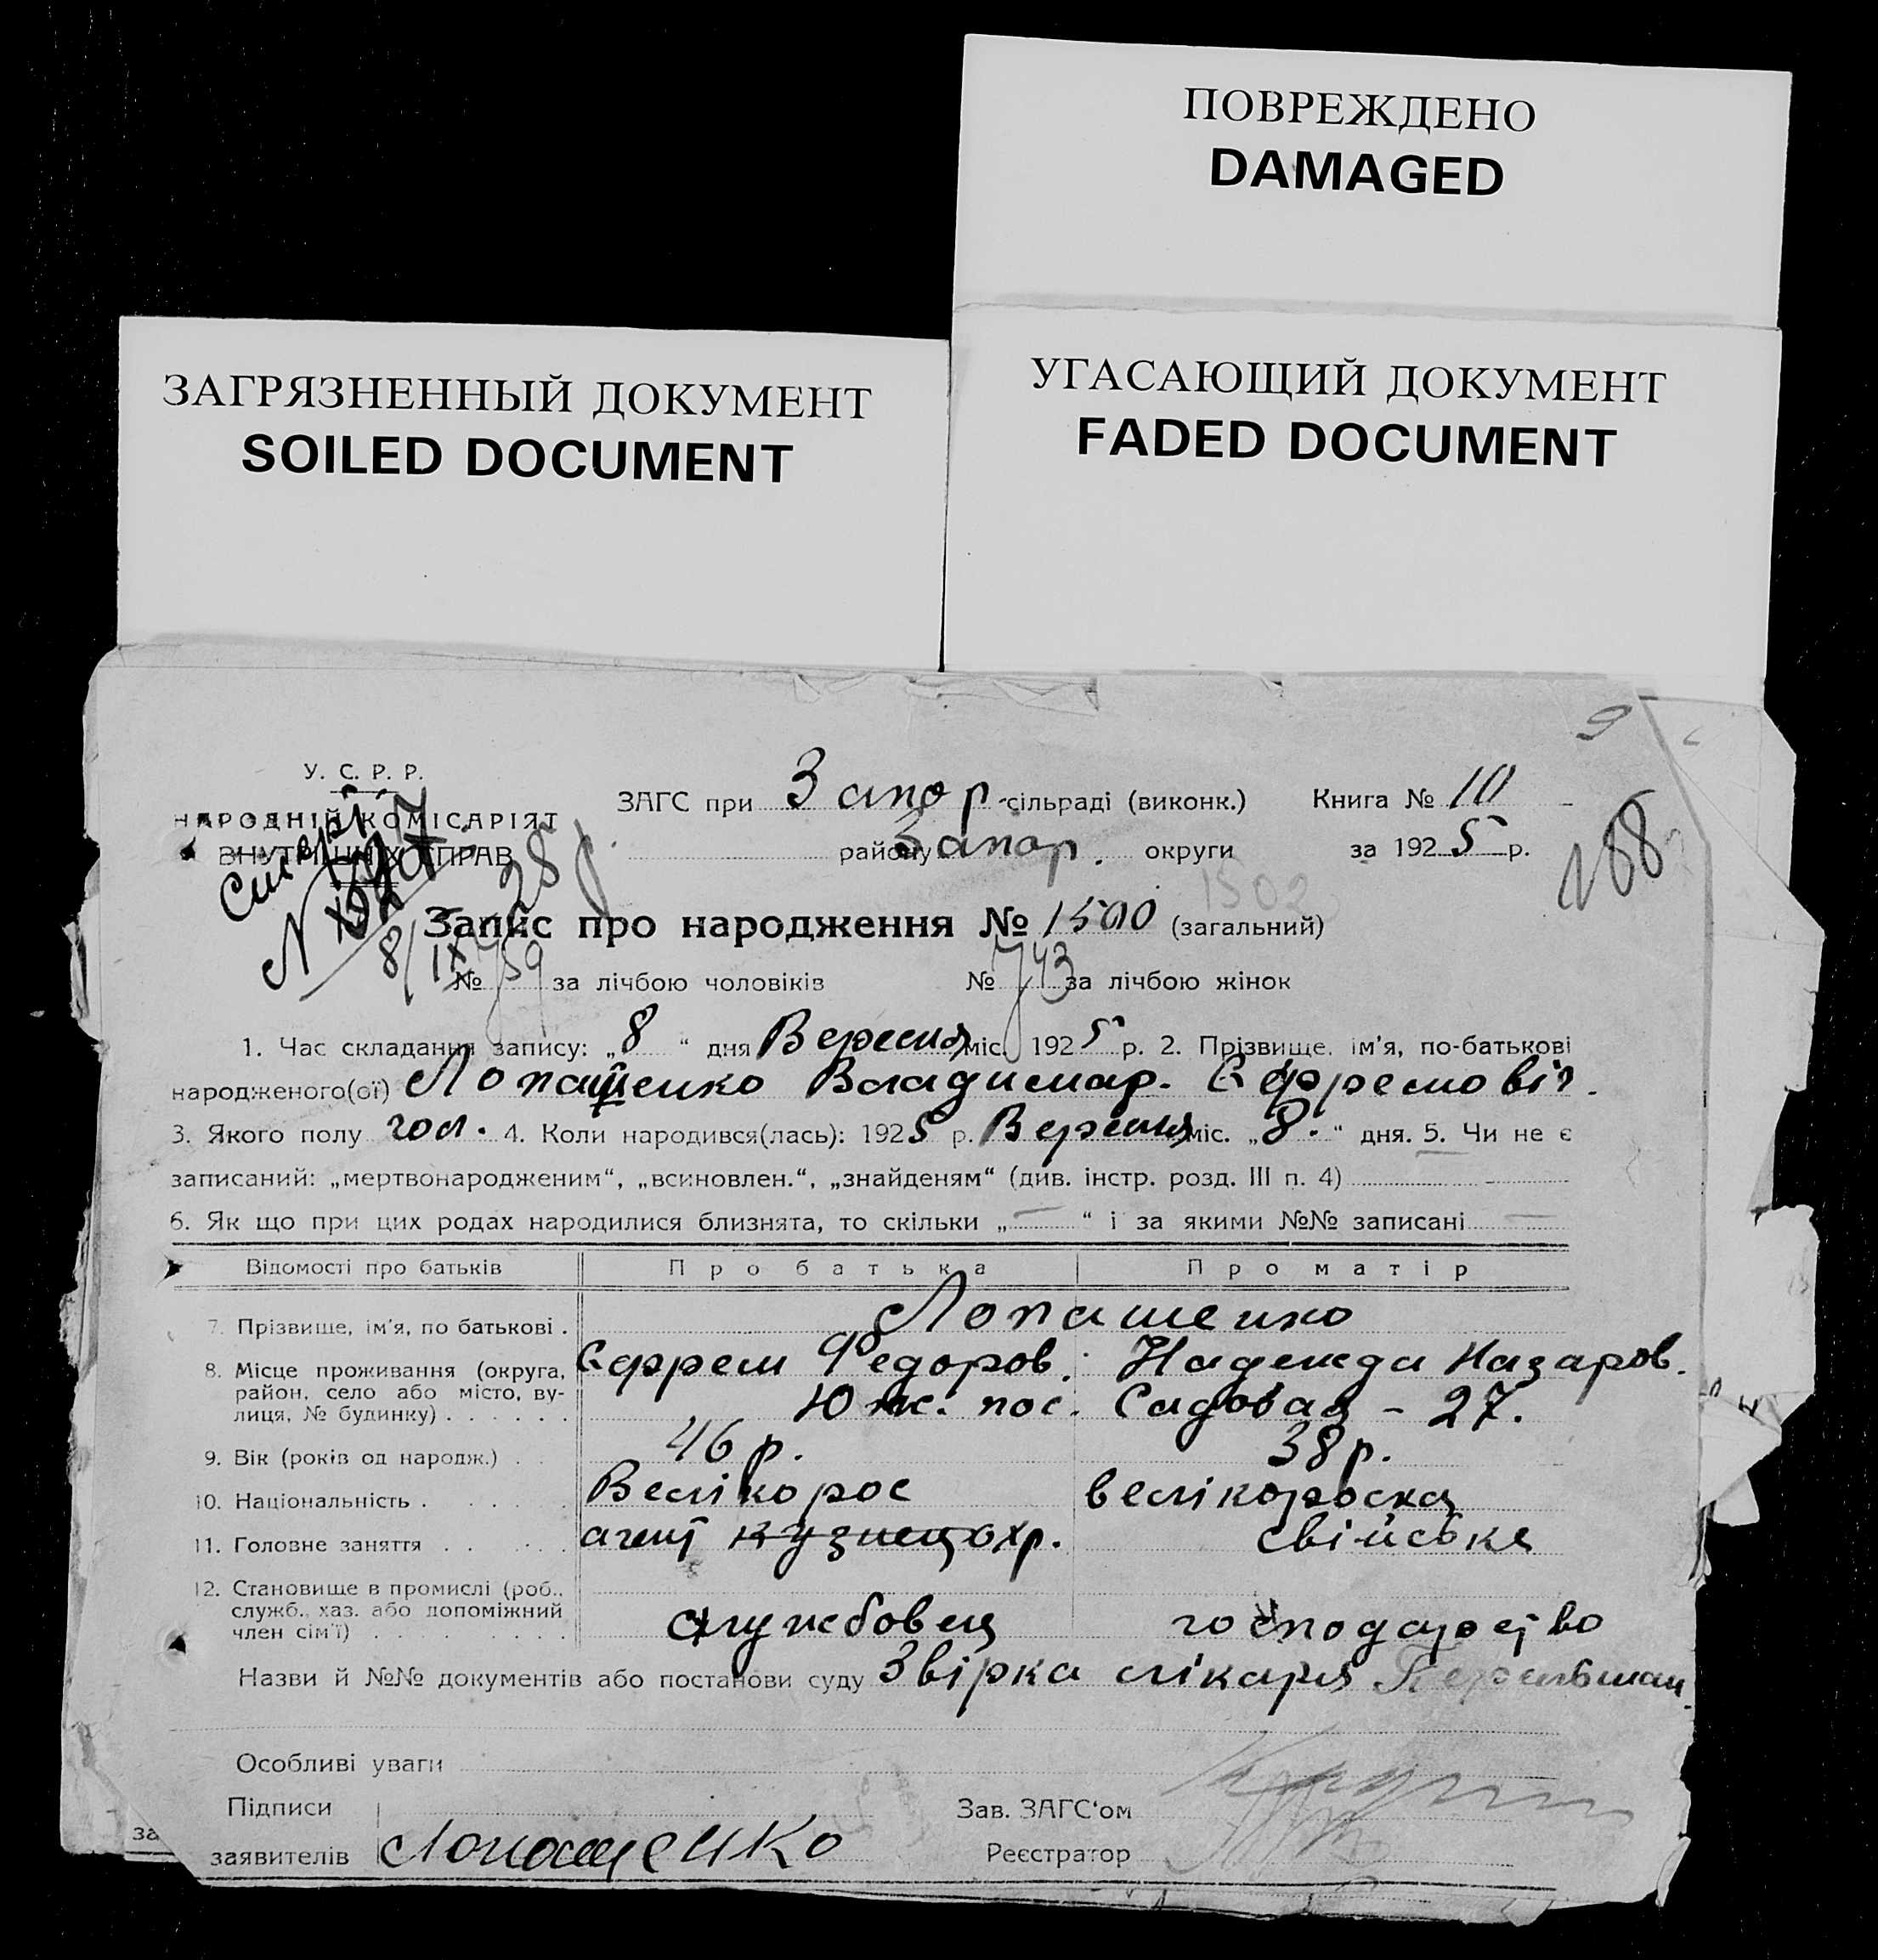 ПОВРЕЖДЕНО
DAMAGED
ЗАГРЯЗНЕННЫЙ ДОКУМЕНТ
SOILED DOCUMENT
УГАСАЮЩИЙ ДОКУМЕНТ
FADED DOCUMENT
9
У. С. Р. Р.
НАРОДНІЙ КОМІСАРІЯТ
ВНУТРІШНІХ СПРАВ
ЗАГС при Запор сільраді (виконк.) Книга № 10
району Запор. округи за 1925 р.
188
Запис про народження № 1500 (загальний)
1502
8/IX
№ 759 за лічбою чоловіків № 743 за лічбою жінок
1. Час складання запису: „8“ дня Вересня міс. 1925 р. 2. Прізвище, ім'я, по-батькові
народженого(ої) Лопащенко Владимир. Єфремовіч.
3. Якого полу чол. 4. Коли народився(лась): 1925 р. Вересня міс. „8.“ дня. 5. Чи не є
записаний: „мертвонародженим“, „всиновлен.“, „знайденям“ (див. інстр. розд. III п. 4)
6. Як що при цих родах народилися близнята, то скільки „—“ і за якими №№ записані —
Відомості про батьків Про батька Про матір
7. Прізвище, ім'я, по батькові . Лопашенко
Єфрем Федоров. Надежда Назаров.
8. Місце проживання (округа,
район, село або місто, ву-
лиця, № будинку) . . . . . . Юж. пос. Садовая - 27.
9. Вік (років од народж.) . . 46 р. 38 р.
10. Національність . . . . . Велікорос велікороска
11. Головне заняття . . . . . агент кузнец охр. свійське
12. Становище в промислі (роб.,
служб., хаз. або допоміжний
член сім'ї) . . . . . . . . службовец господарство
Назви й №№ документів або постанови суду Звірка лікаря
Особливі уваги
Підписи
заявителів Лопащенко
Зав. ЗАГС'ом
Реєстратор
за